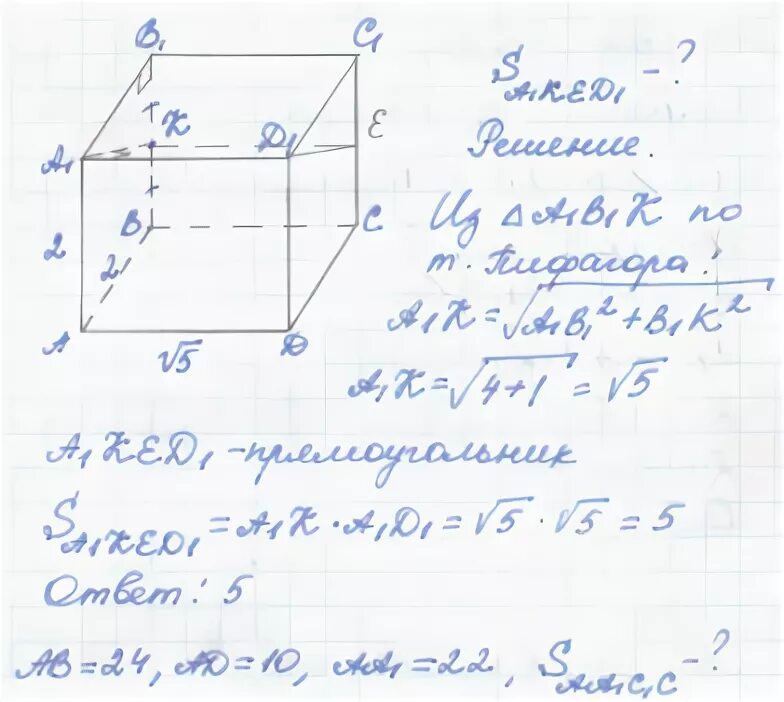 B₁ C₁
K D₁ E
A₁
B C
2
2
A √5 D
S_A₁KED₁ - ?
Решение.
Из △A₁B₁K по
т. Пифагора:
A₁K = √(A₁B₁² + B₁K²)
A₁K = √(4+1) = √5
A₁KED₁ - прямоугольник
S_A₁KED₁ = A₁K · A₁D₁ = √5 · √5 = 5
Ответ: 5
AB = 24, AD = 10, AA₁ = 22, S_AA₁C₁C - ?